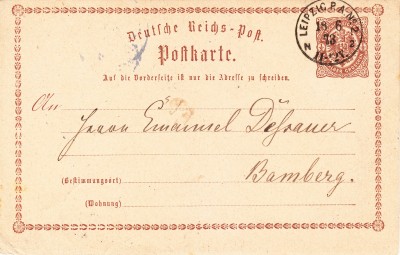 Deutsche Reichs-Post.
Postkarte.
Auf die Vorderseite ist nur die Adresse zu schreiben.
LEIPZIG P.A. No 2
18 6
76
An
Herrn Emanuel Dessauer
Bamberg.
(Bestimmungsort)
(Wohnung)